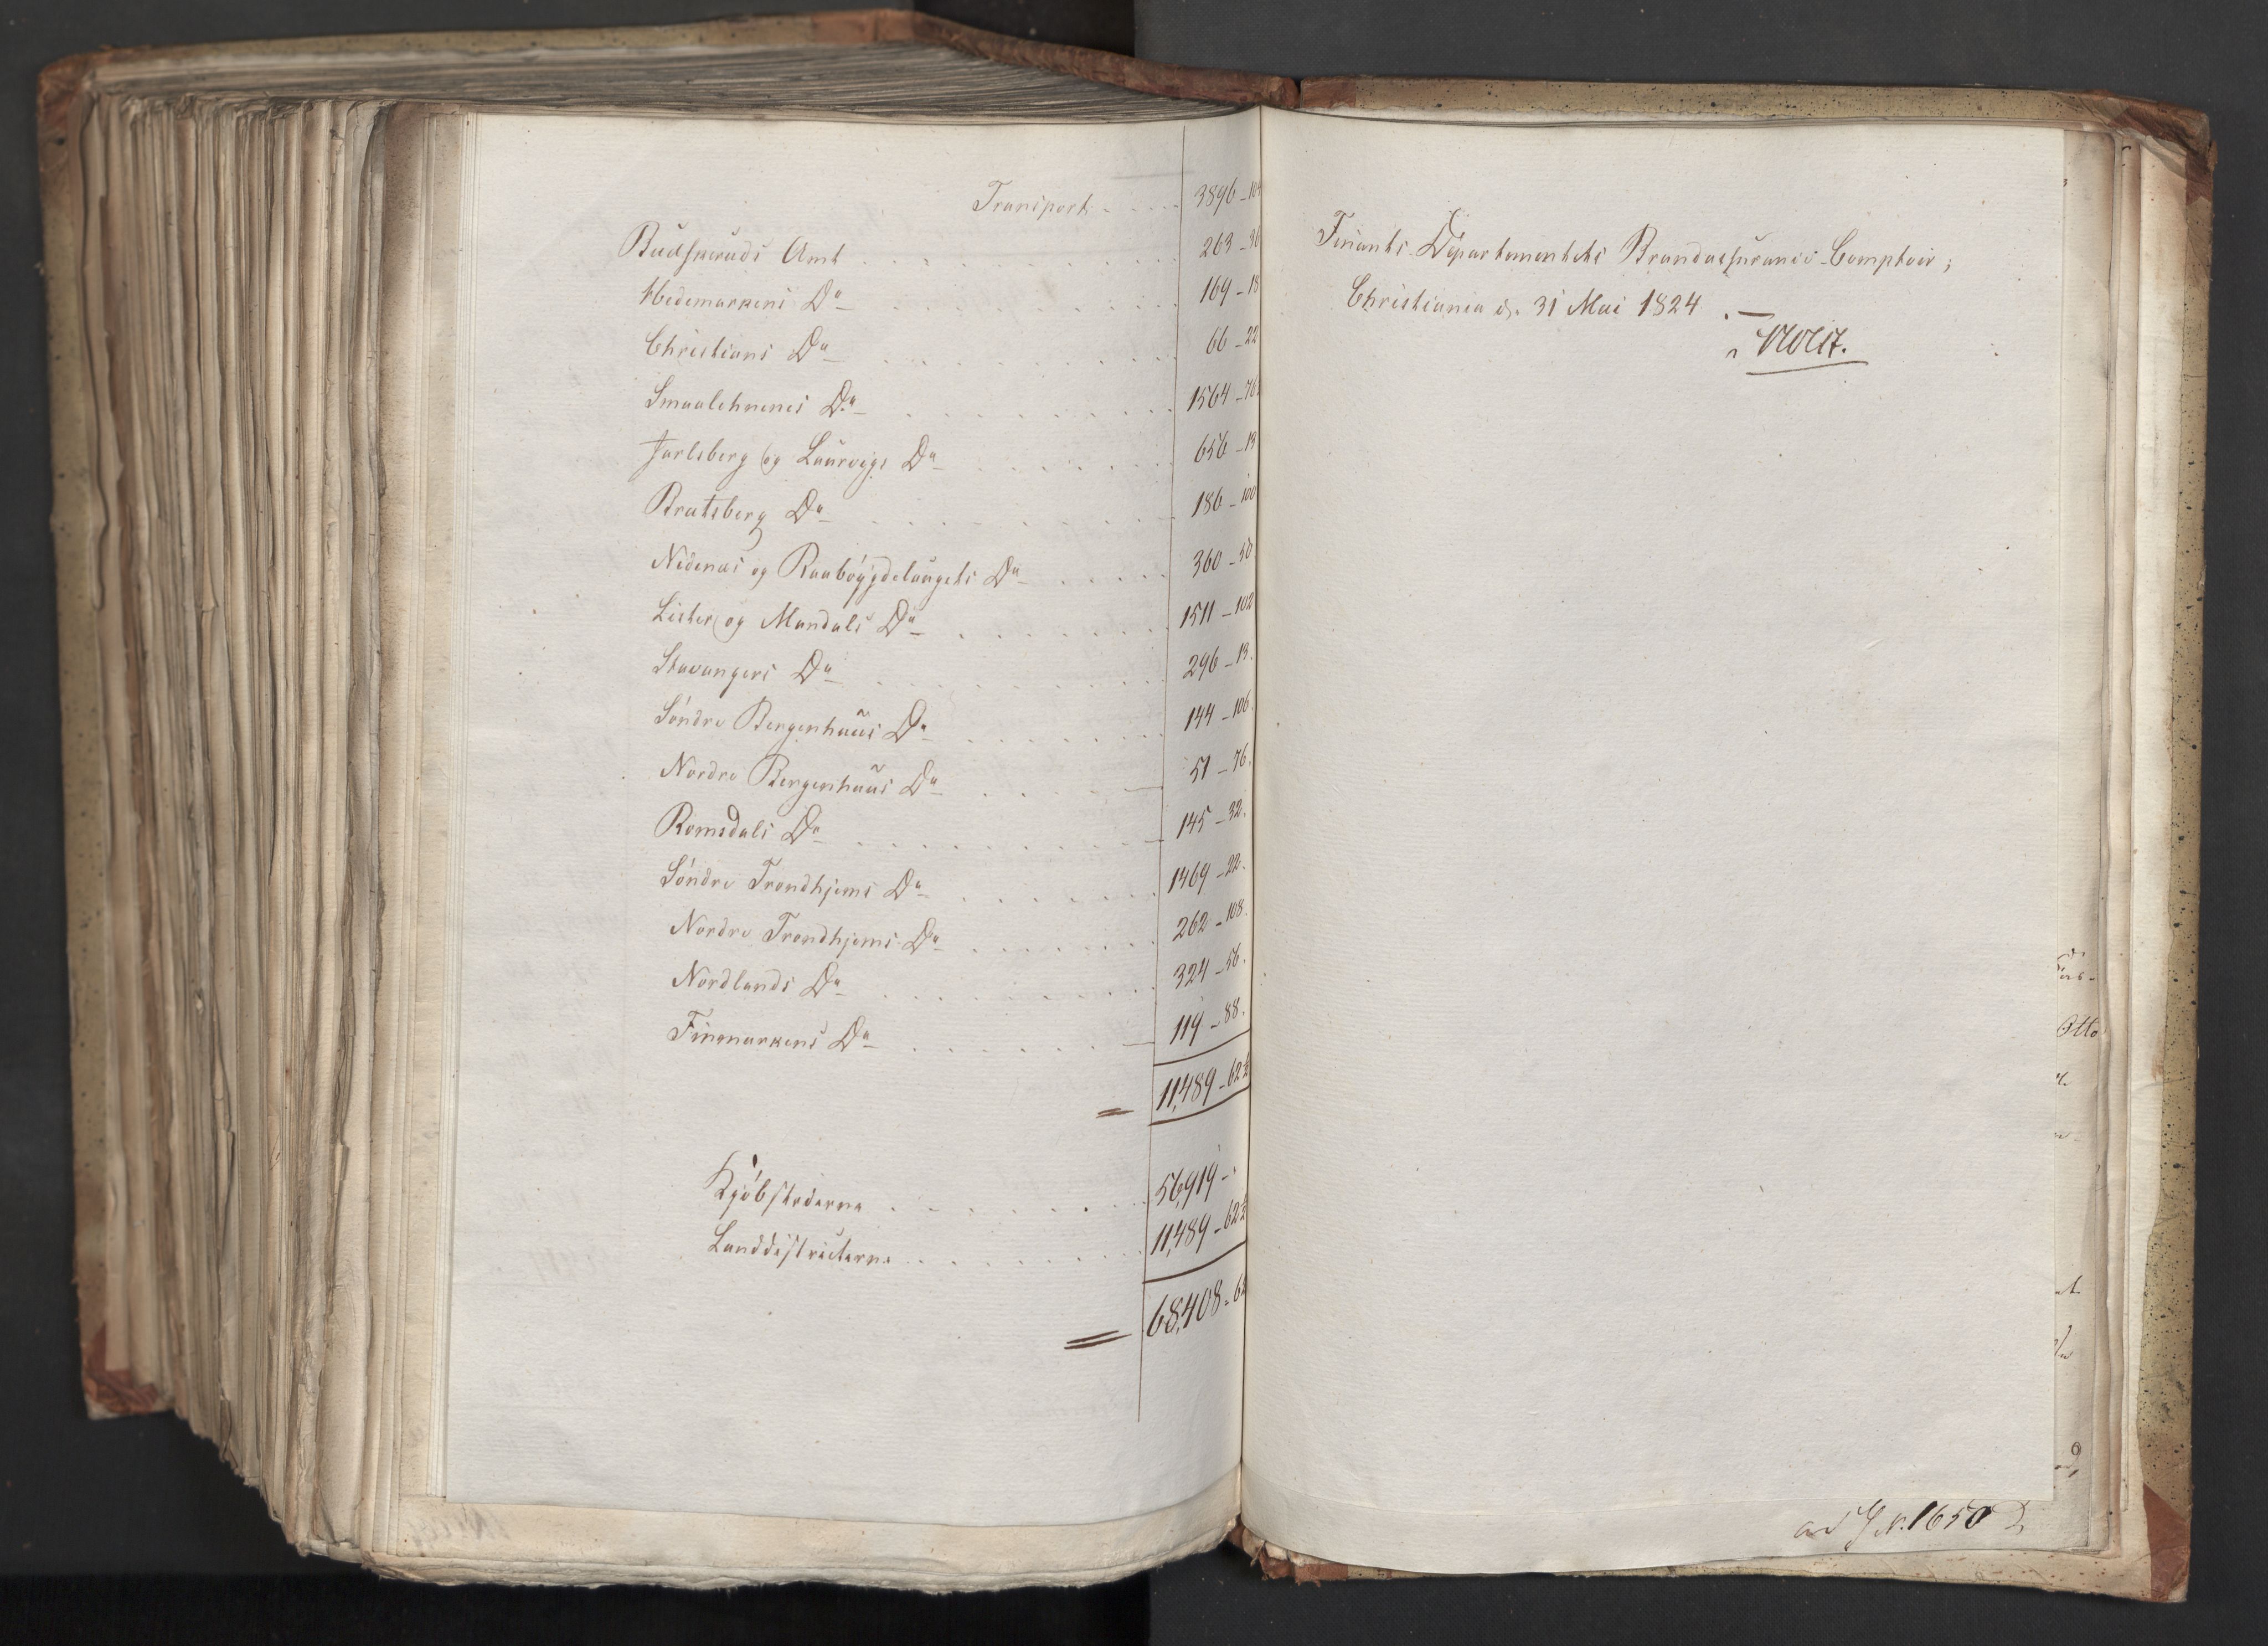 Transport 3896 - 10
Budskeruds Amt 263 - 36
Hedemarkens Do 169 - 18
Christians Do 66 - 22
Smaalehnenes Do 1564 - 76
Jarlsberg og Laurvigs Do 656 - 13
Bratsberg Do 186 - 100
Nedenæs og Raabøygdelaugets Do 360 - 50
Lister og Mandals Do 1511 - 102
Stavangers Do 296 - 13.
Söndre Bergenhuus Do 144 - 106.
Nordre Bergenhuus Do 51 - 76.
Romsdals Do 145 - 32.
Söndre Trondhjems Do 1469 - 22.
Nordre Trondhjems Do 262 - 108.
Nordlands Do 324 - 56.
Finmarkens Do 119 - 88.
= 11,489 - 62½
Kjöbstæderne 56,919 - "
Landdistricterne 11,489 - 62½
= 68,408 - 62
Finants Departementets Brandassurance-Comptoir,
Christiania d. 31 Mai 1824. —
Holst.
ad J. N. 1650
Otto